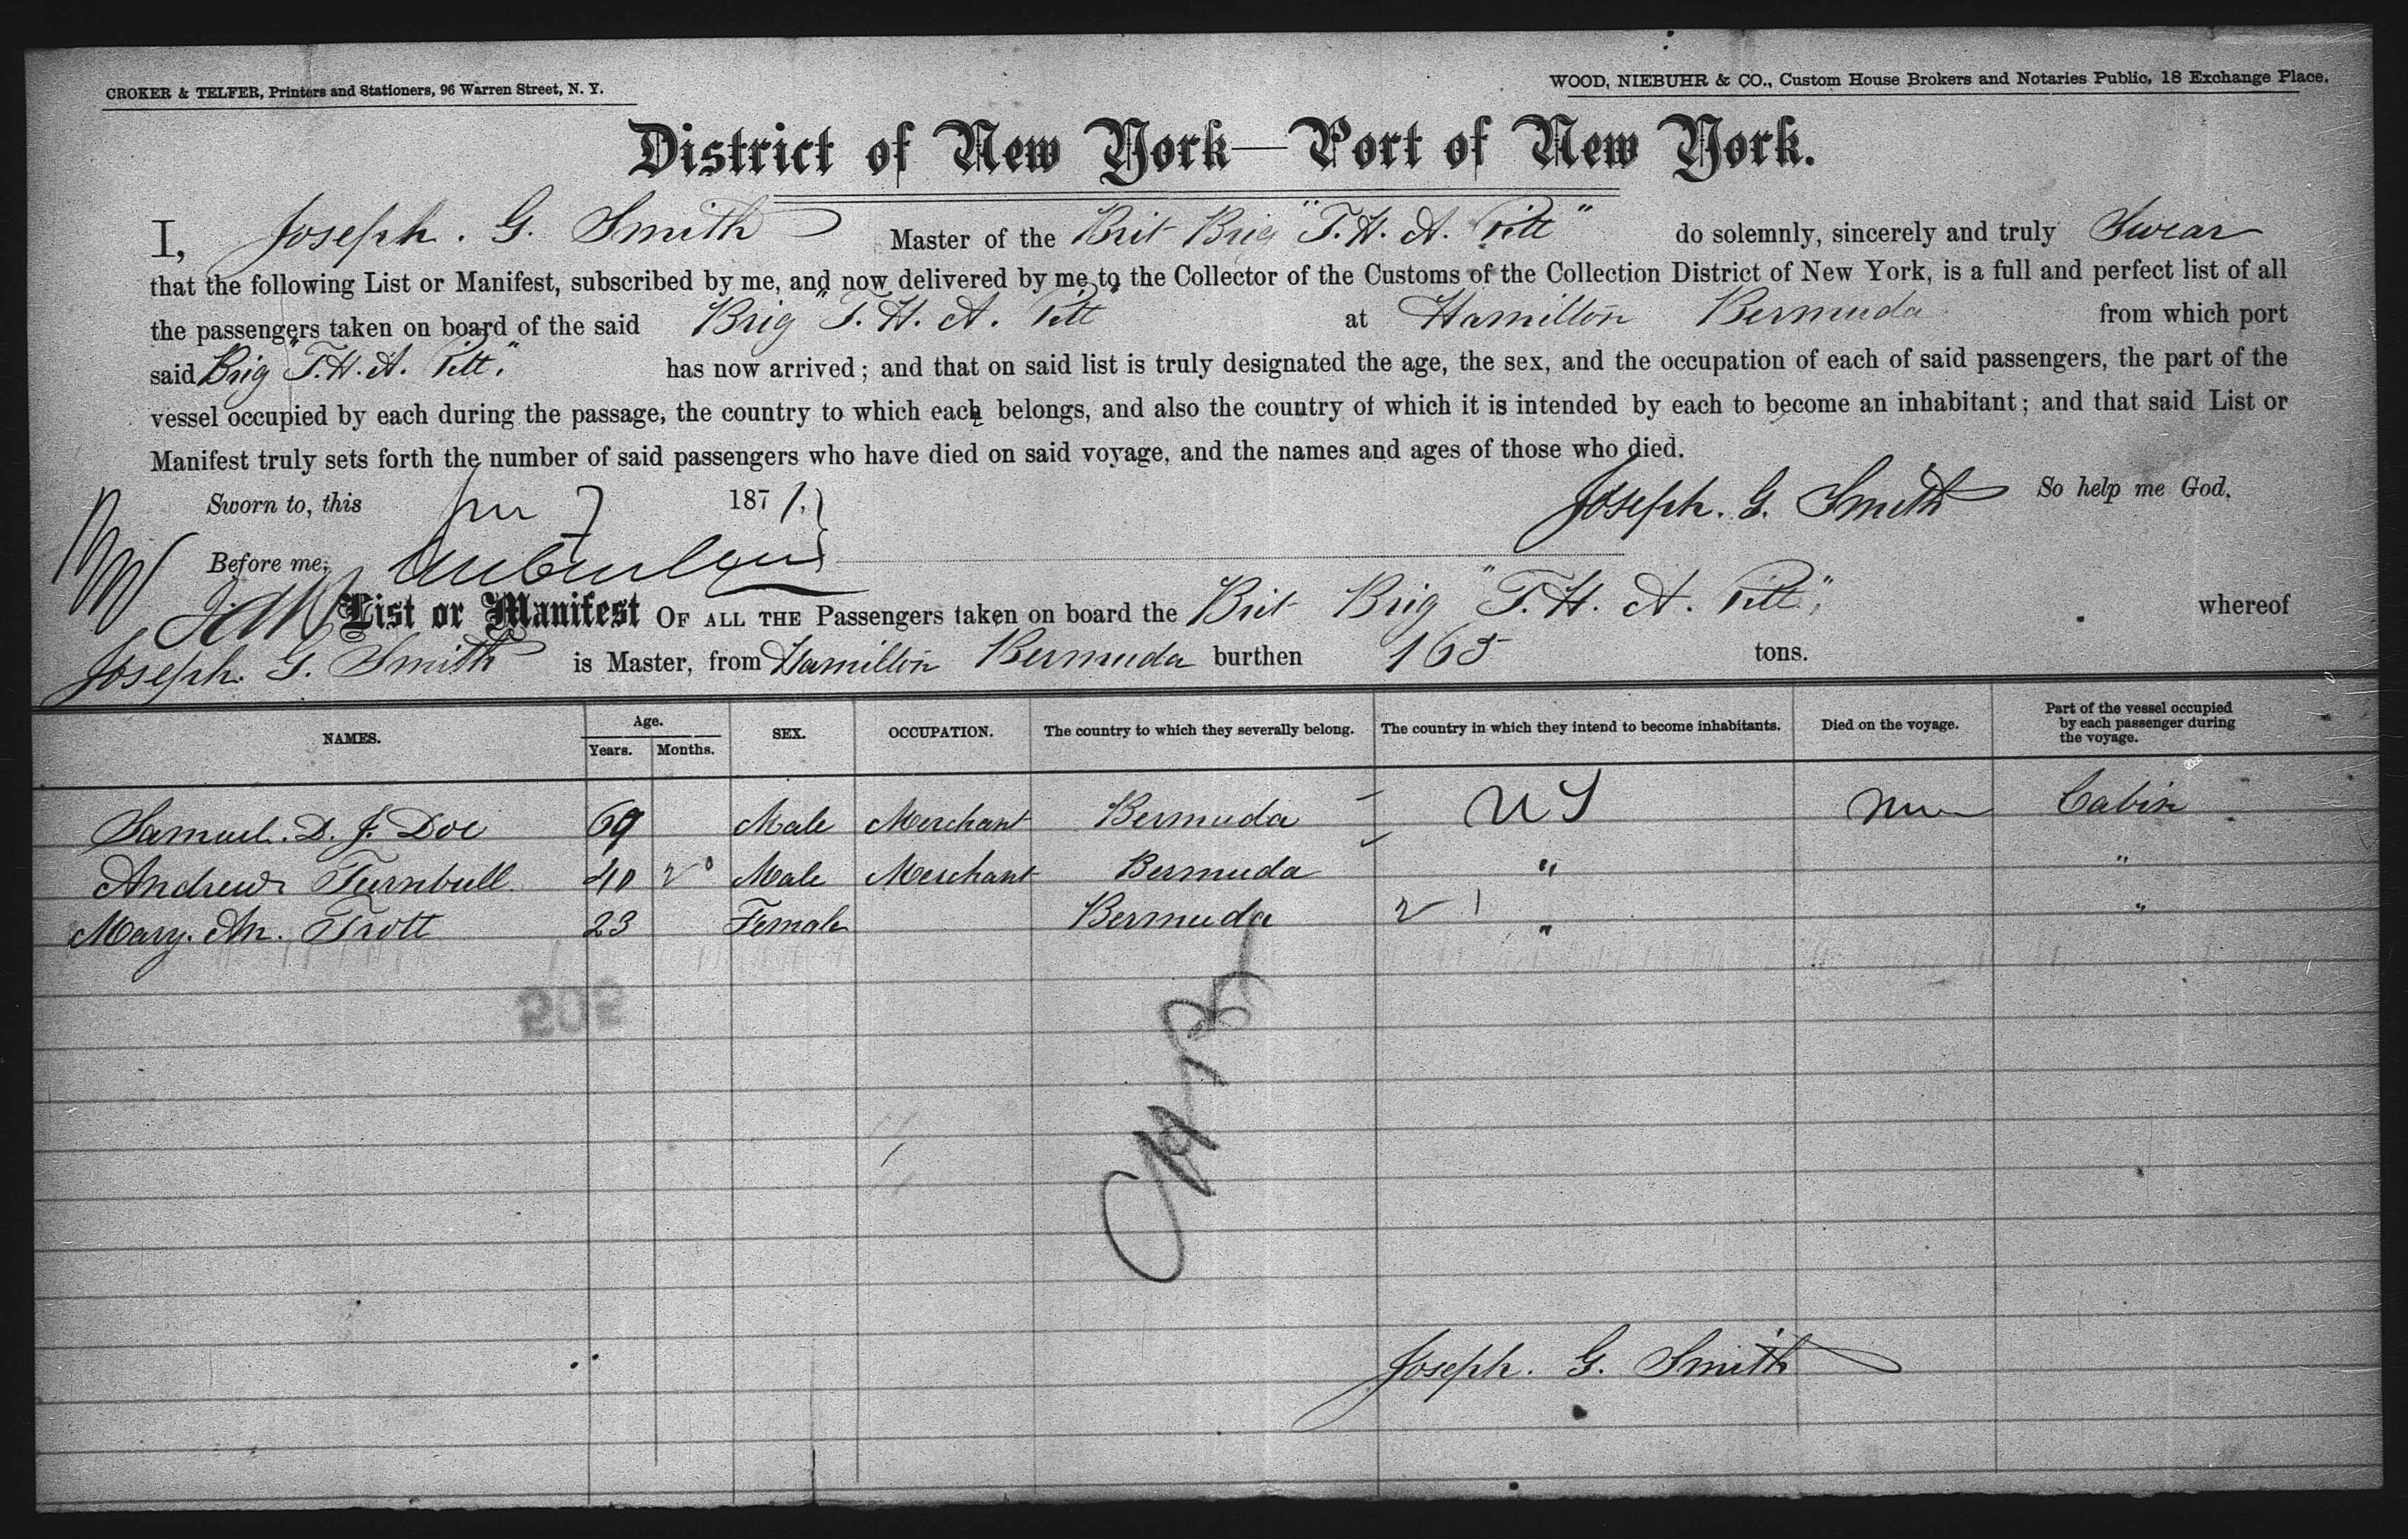 CROKER & TELFER, Printers and Stationers, 96 Warren Street, N. Y.
WOOD, NIEBUHR & CO., Custom House Brokers and Notaries Public, 18 Exchange Place.
District of New York—Port of New York.
I, Joseph. G. Smith Master of the Brit Brig "T. H. A. Pitt" do solemnly, sincerely and truly Swear
that the following List or Manifest, subscribed by me, and now delivered by me to the Collector of the Customs of the Collection District of New York, is a full and perfect list of all
the passengers taken on board of the said Brig "T. H. A. Pitt" at Hamilton Bermuda from which port
said Brig "T. H. A. Pitt" has now arrived; and that on said list is truly designated the age, the sex, and the occupation of each of said passengers, the part of the
vessel occupied by each during the passage, the country to which each belongs, and also the country of which it is intended by each to become an inhabitant; and that said List or
Manifest truly sets forth the number of said passengers who have died on said voyage, and the names and ages of those who died.
Sworn to, this 7 1871. Joseph. G. Smith So help me God.
Before me,
List or Manifest OF ALL THE Passengers taken on board the Brit Brig "T. H. A. Pitt", whereof
Joseph. G. Smith is Master, from Hamilton Bermuda burthen 165 tons.
NAMES. Age. Years. Months. SEX. OCCUPATION. The country to which they severally belong. The country in which they intend to become inhabitants. Died on the voyage. Part of the vessel occupied by each passenger during the voyage.
Samuel. D. J. Doe 69 Male Merchant Bermuda U S Cabin
Andrew Turnbull 40 Male Merchant Bermuda " "
Mary. An. Trott 23 Female Bermuda " "
Joseph. G. Smith